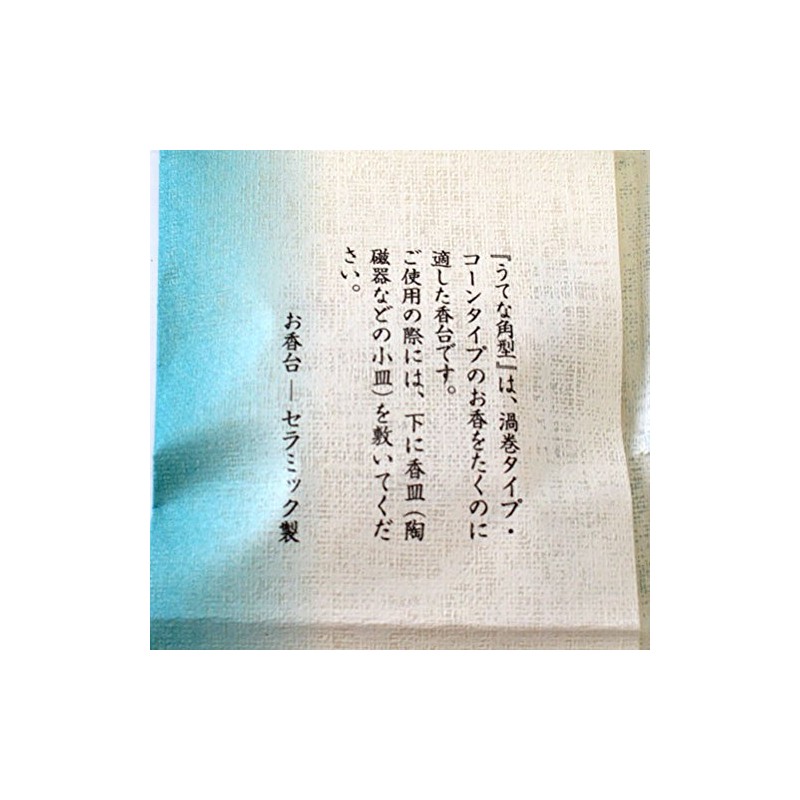 『うてな角型』は、渦巻タイプ・
コーンタイプのお香をたくのに
適した香台です。
ご使用の際には、下に香皿（陶
磁器などの小皿）を敷いてくだ
さい。
お香台―セラミック製